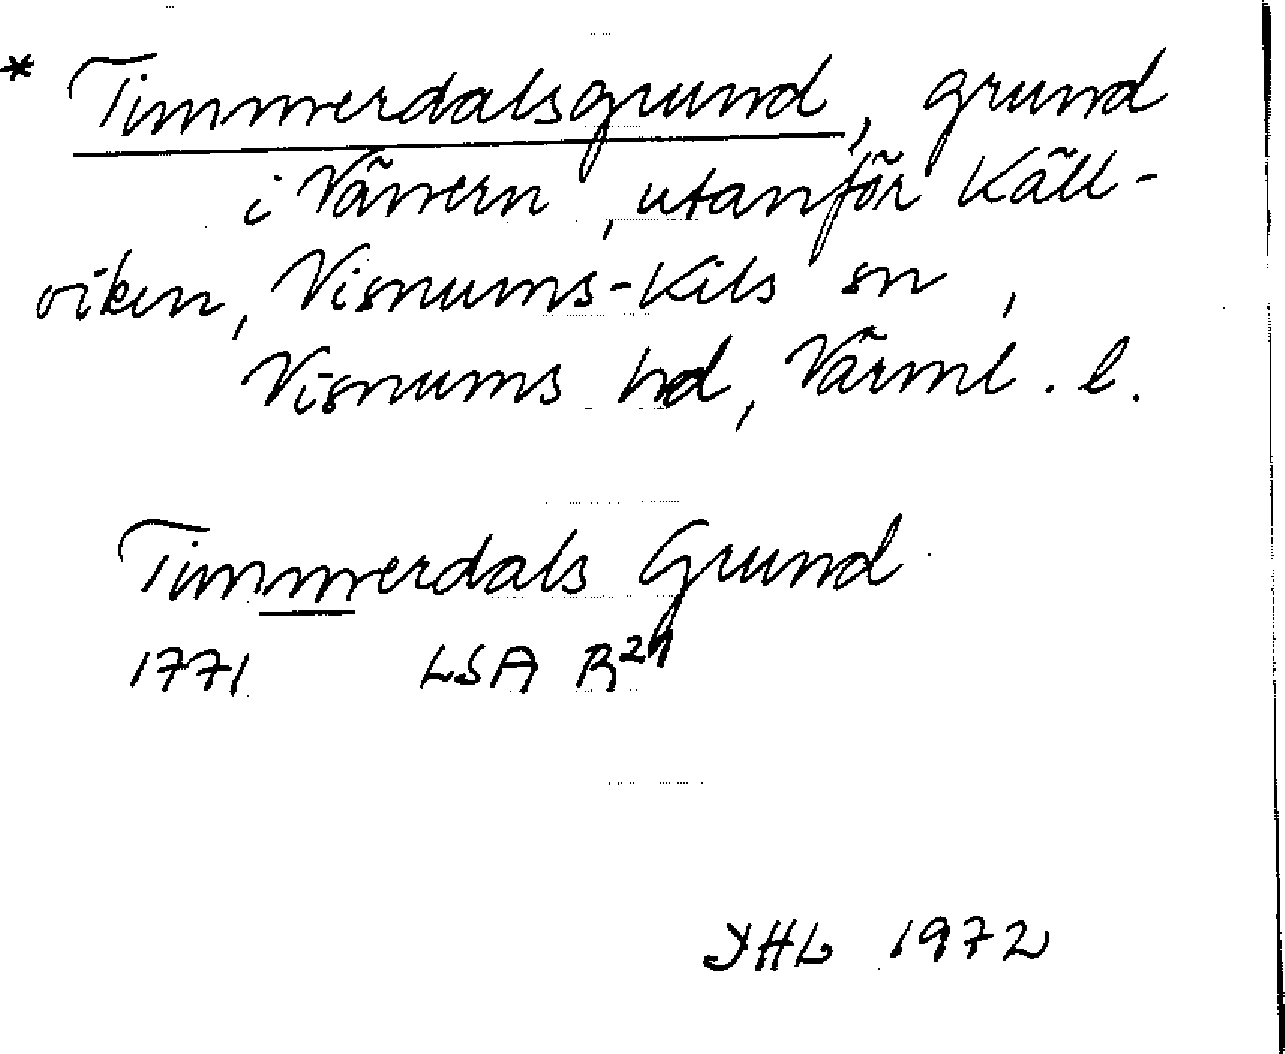 * Timmerdalsgrund, grund
i Vänern, utanför Käll-
viken, Visnums-Kils sn,
Visnums hd, Värml. l.
Timmerdals Grund
1771 LSA R24
YHL 1972